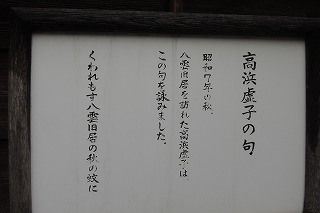 高浜虚子の句
昭和7年の秋、
八雲旧居を訪れた高浜虚子は
この句を詠みました。
くわれもす八雲旧居の秋の蚊に